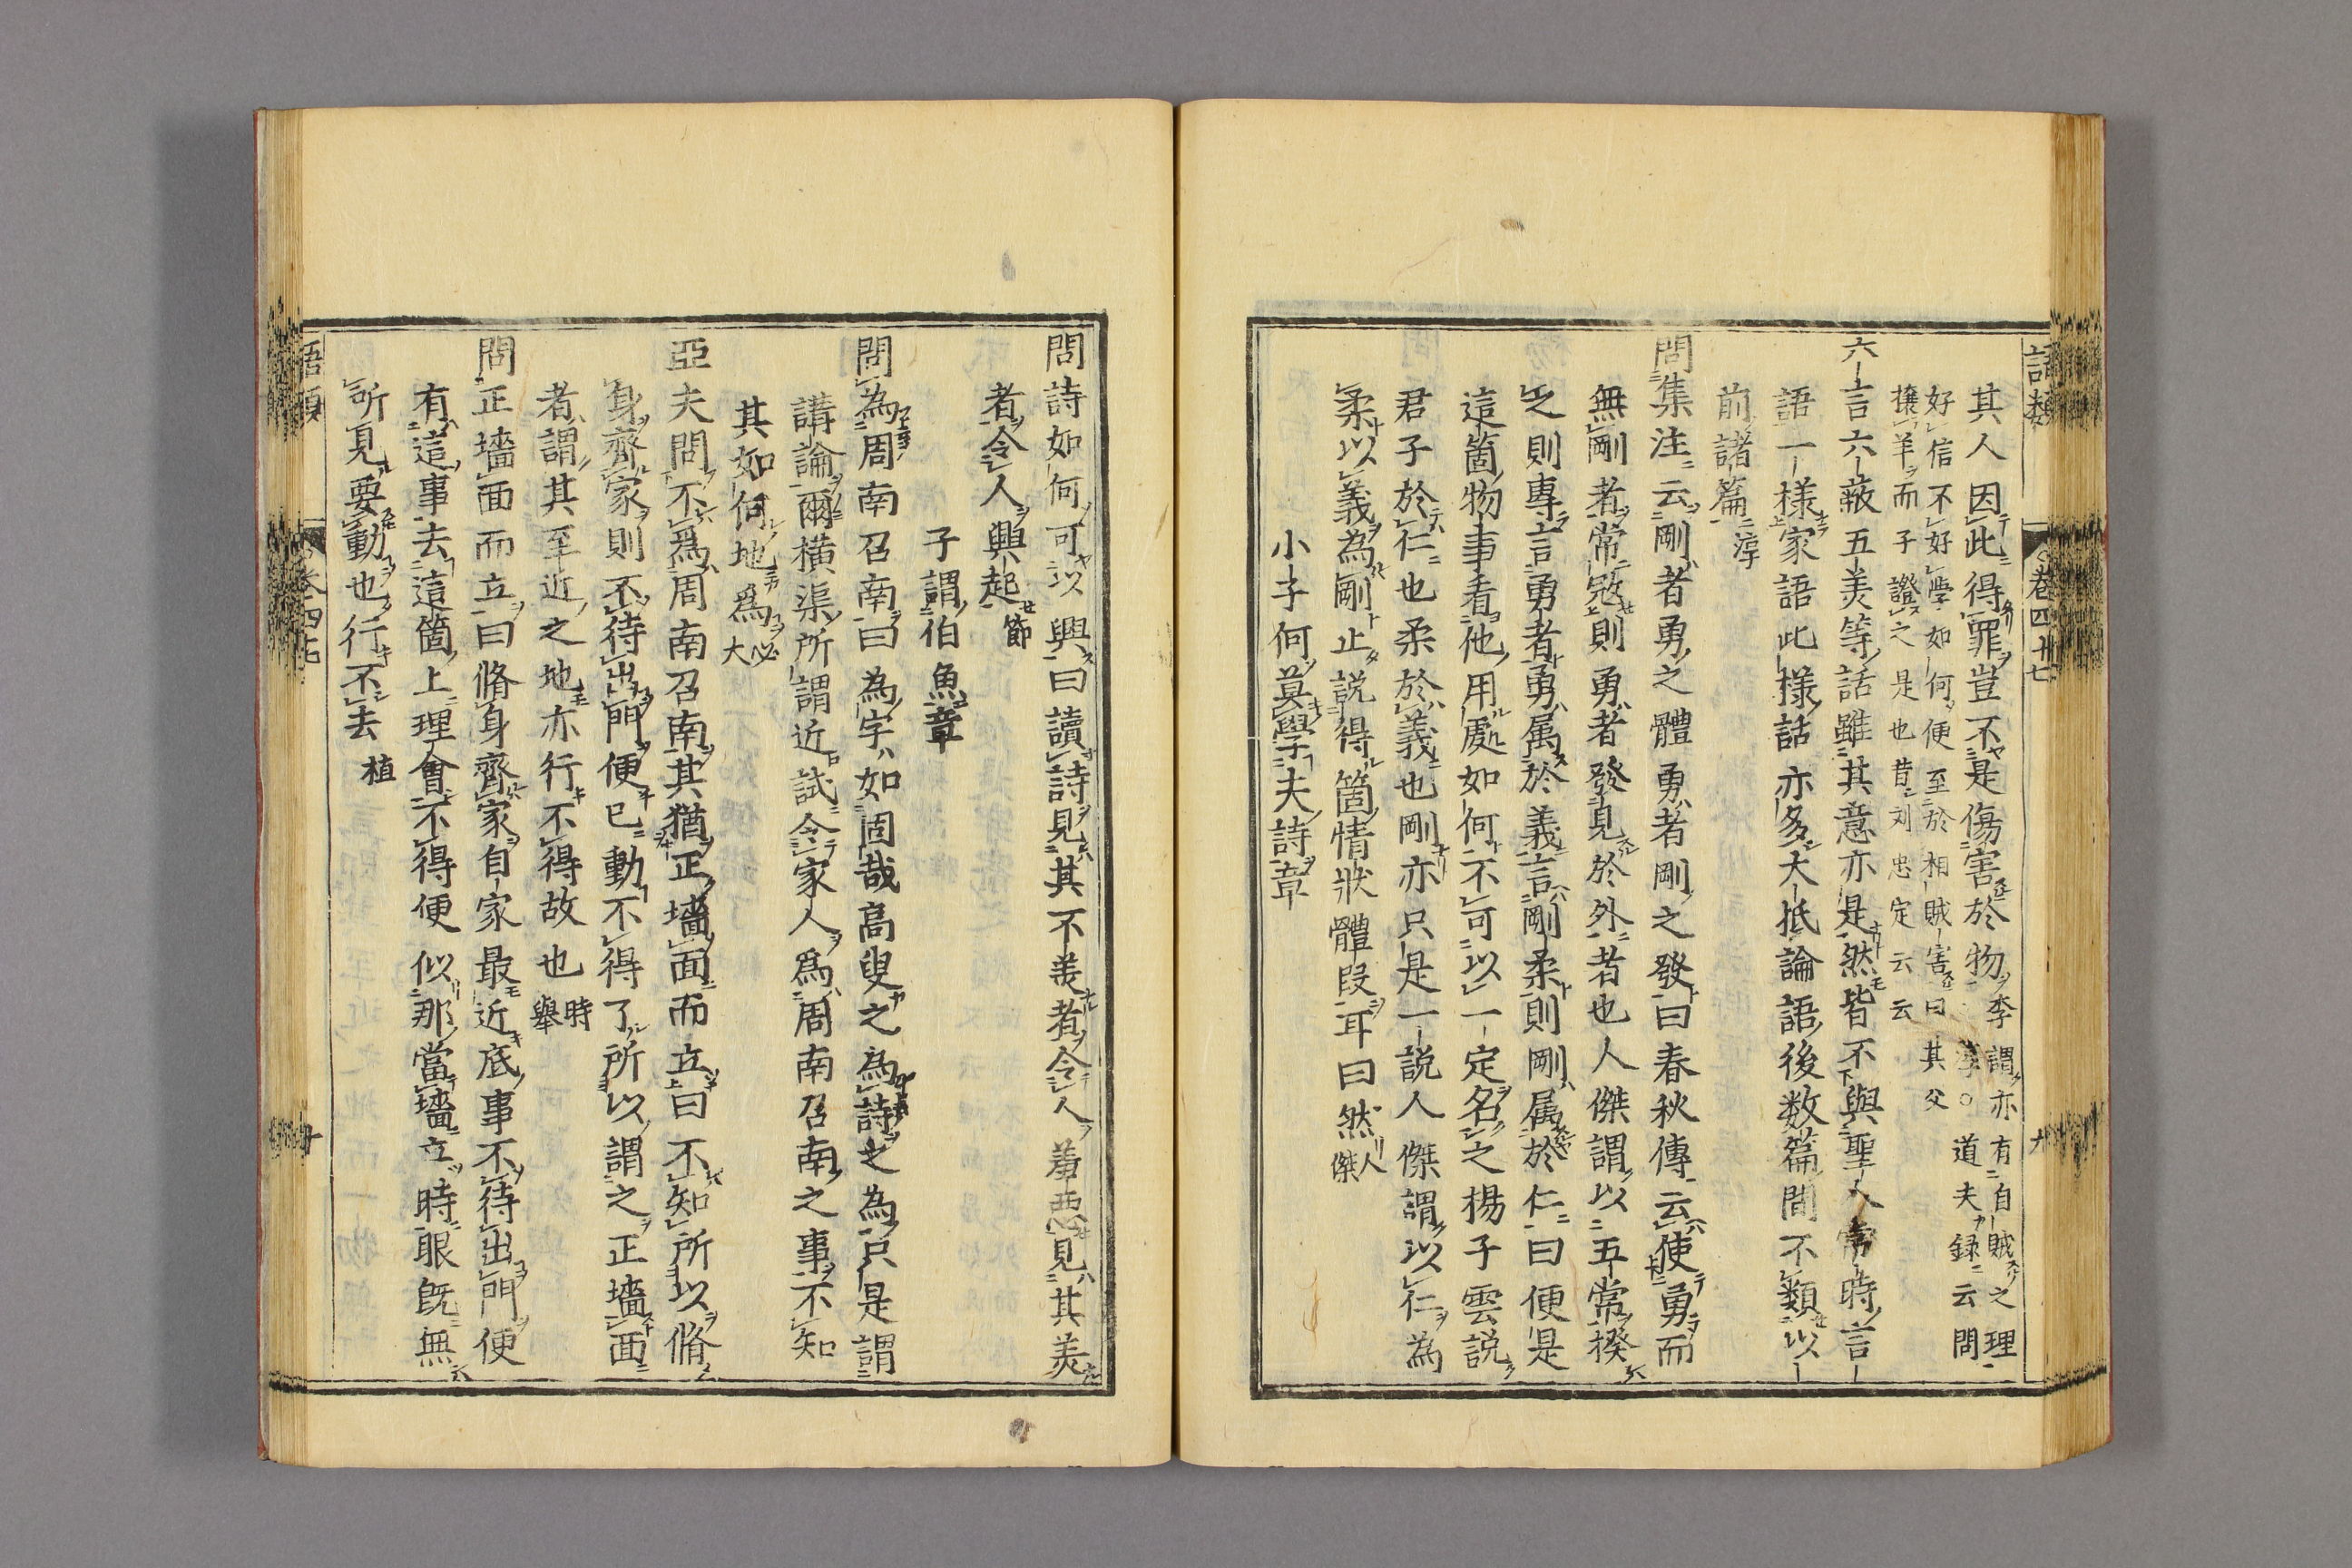 語類
卷四十七
九
其人因此得罪豈不是傷害於物李謂亦有自賊之理
淳○道夫録云問
好信不好學如何便至於相賊害曰其父
攘羊而子證之是也昔刘忠定云云
六言六蔽五美等話雖其意亦是然皆不與聖人常時言
語一様家語此様話亦多大抵論語後数篇間不類以
前諸篇淳
問集注云剛者勇之體勇者剛之發曰春秋傳云使勇而
無剛者常㓂則勇者發見於外者也人傑謂以五常揆
之則專言勇者勇属於義言剛柔則剛属於仁曰便是
這箇物事看他用處如何不可以一定名之揚子雲説
君子於仁也柔於義也剛亦只是一説人傑謂以仁為
柔以義為剛止説得箇情狀體段耳曰然人傑
小子何莫學夫詩章
問詩如何可以興曰讀詩見其不美者令人羞惡見其美
者令人興起節
子謂伯魚章
問為周南召南曰為字如固哉高叟之為詩之為只是謂
講論爾横渠所謂近試令家人爲周南召南之事不知
其如何地爲必大
亞夫問不爲周南召南其猶正墻面而立曰不知所以脩
身齊家則不待出門便已動不得了所以謂之正墻面
者謂其至近之地亦行不得故也時舉
問正墻面而立曰脩身齊家自家最近底事不待出門便
有這事去這箇上理會不得便似那當墻立時眼旣無
所見要動也行不去植
語類
卷四七
十